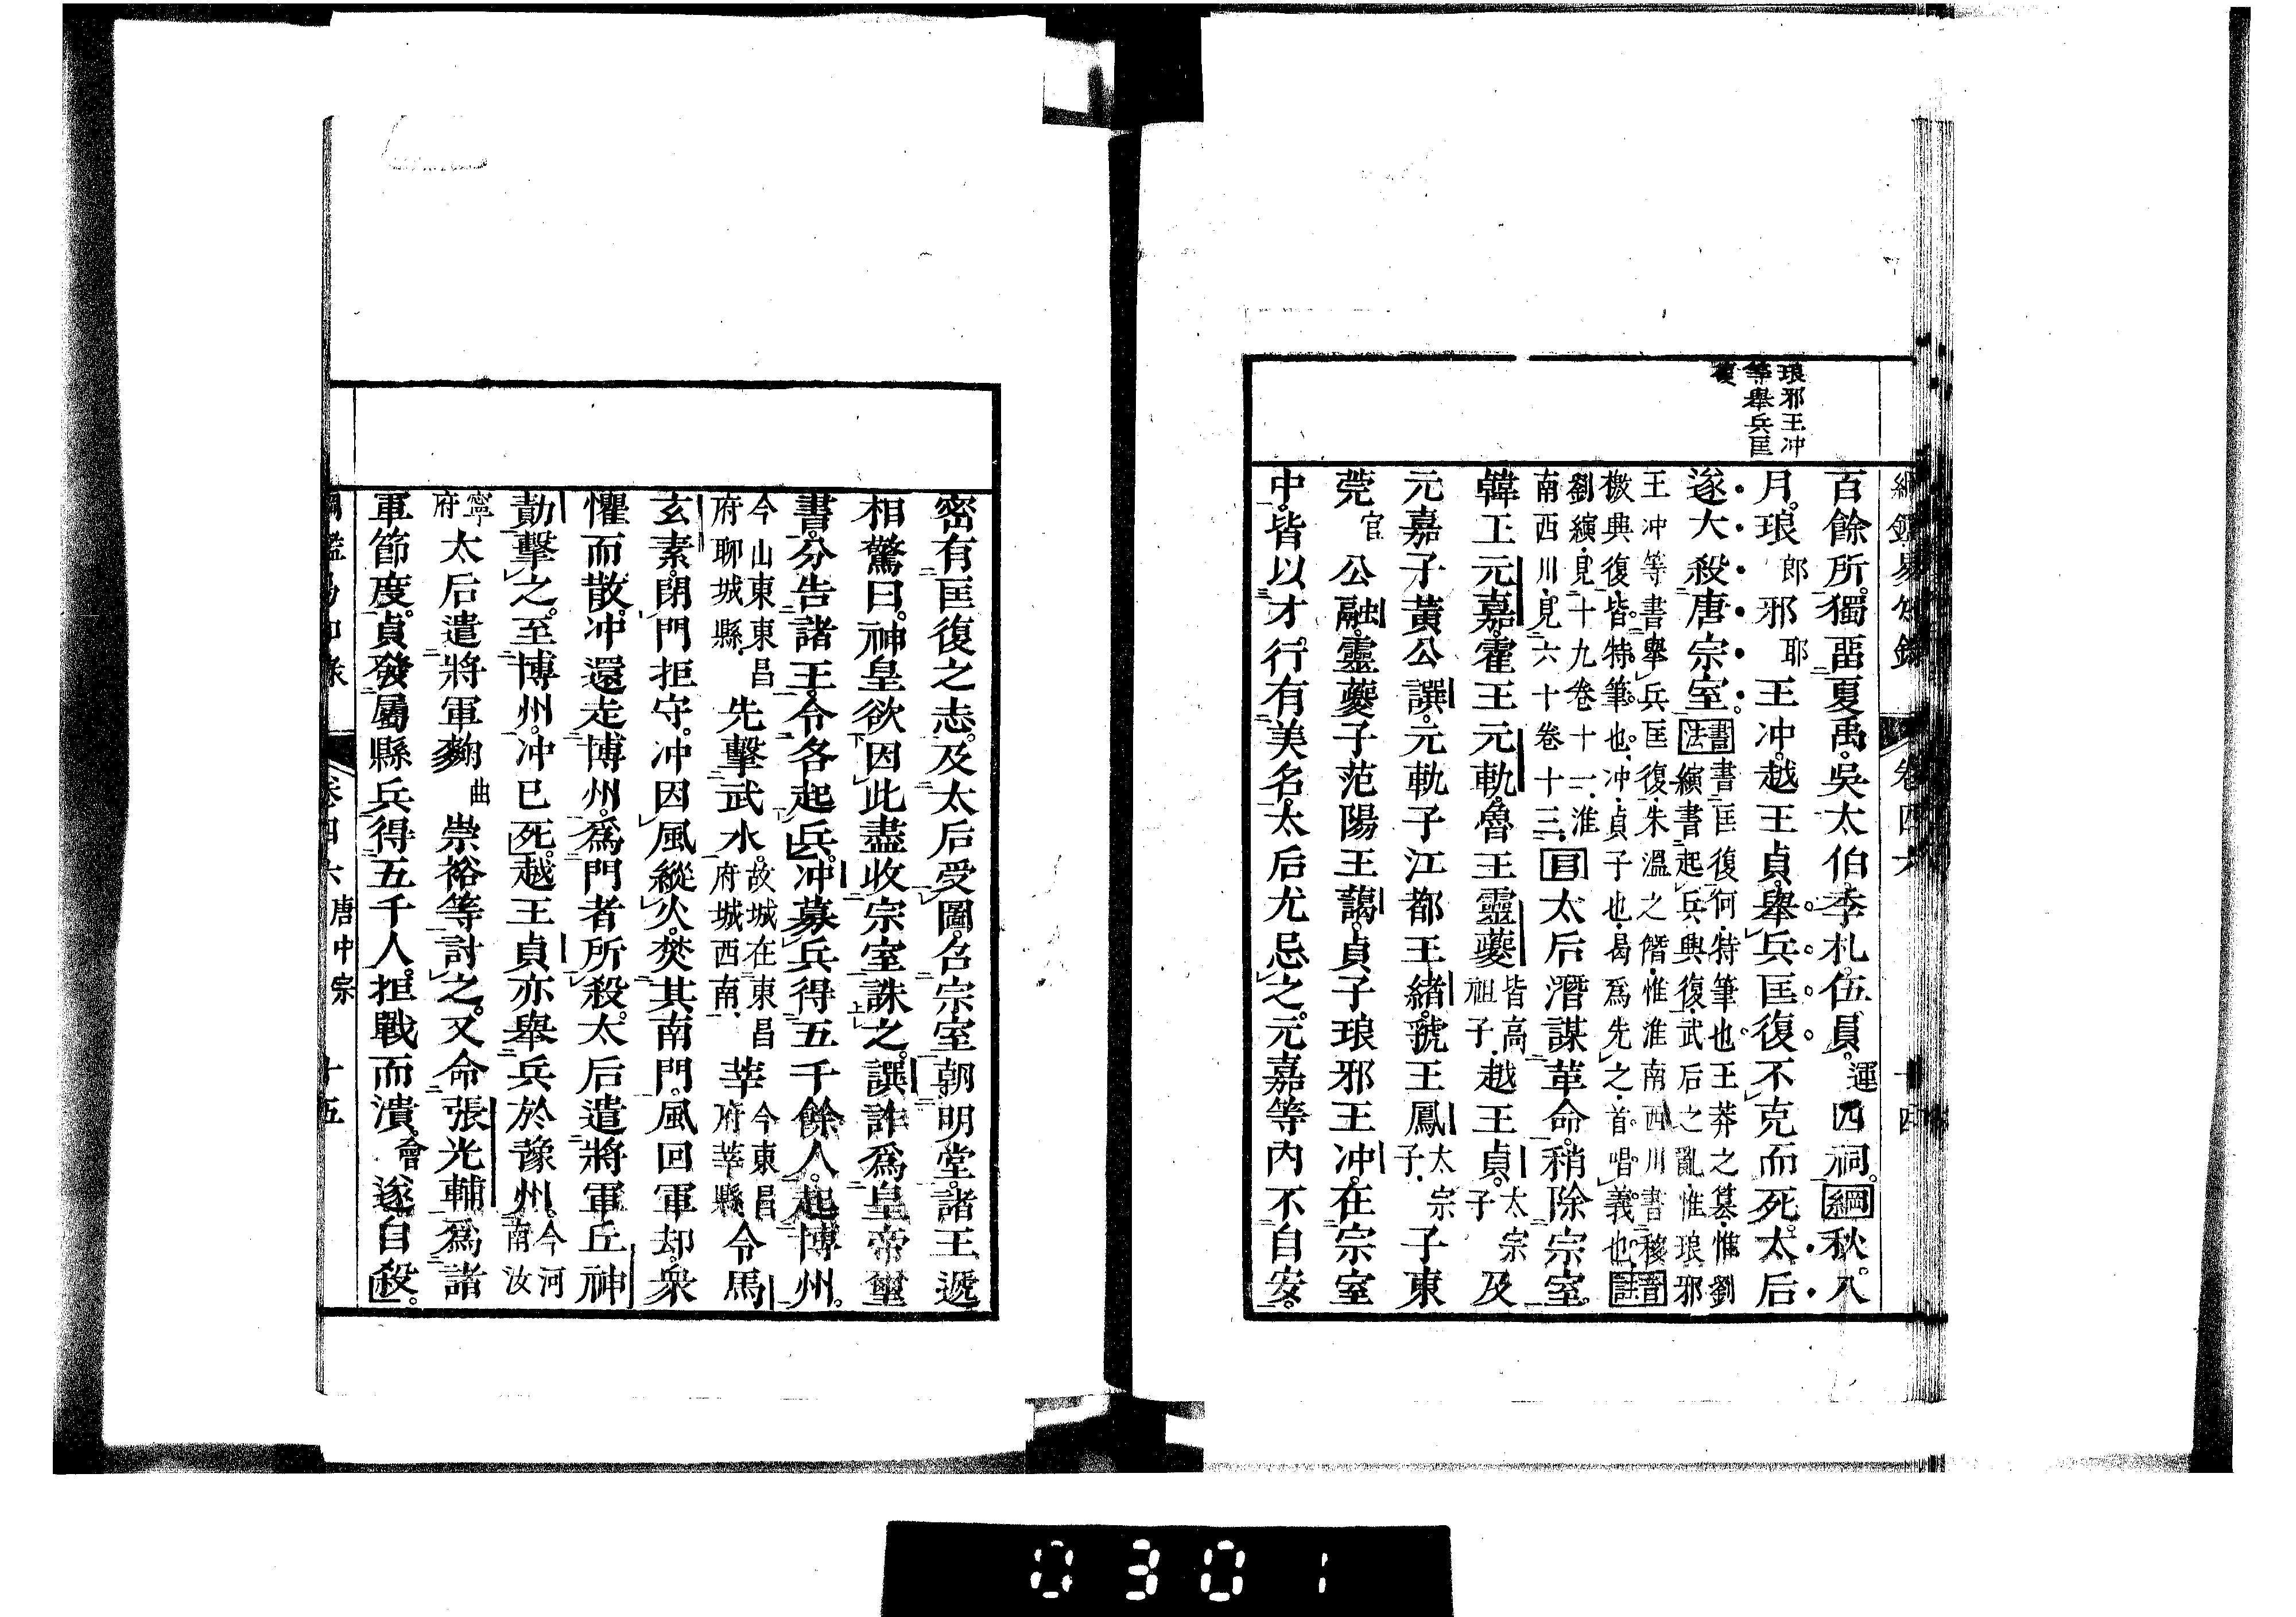 綱鑑易知錄　卷四六　十四
琅邪王冲
等舉兵匡
復
百餘所。獨畱夏禹。吳太伯。季札。伍員。運四祠。綱秋。八
月。琅郎邪耶王冲。越王貞。舉兵匡復。不克而死。太后
遂大殺唐宗室。書法書匡復何。特筆也。王莽之篡。惟劉
縯書起兵興復。武后之亂。惟琅邪
王冲等書舉兵匡復。朱溫之僭。惟淮南西川書移
檄興復。皆特筆也。冲。貞子也。曷爲先之。首唱義也。音註
劉縯。見十九卷十一。淮
南西川。見六十卷十三。目太后潛謀革命。稍除宗室。
韓王元嘉。霍王元軌。魯王靈夔皆高祖子。越王貞。太宗子及
元嘉子黃公譔。元軌子江都王緒。虢王鳳太宗子。子東
莞官公融。靈夔子范陽王藹。貞子琅邪王冲。在宗室
中。皆以才行有美名。太后尤忌之。元嘉等內不自安。
密有匡復之志。及太后受圖。名宗室朝明堂。諸王遞
相驚曰。神皇欲因此盡收宗室誅之。譔詐爲皇帝璽
書。分告諸王。令各起兵。冲募兵得五千餘人。起博州。
今山東東昌府聊城縣。先擊武水。故城在東昌府城西南。莘今東昌府莘縣令馬
玄素。閉門拒守。冲因風縱火。焚其南門。風回軍却。衆
懼而散。冲還走博州。爲門者所殺。太后遣將軍丘神
勣擊之。至博州。冲已死。越王貞亦舉兵於豫州。今河南汝
寧府太后遣將軍麴曲崇裕等討之。又命張光輔爲諸
軍節度。貞發屬縣兵得五千人。拒戰而潰。會遂自殺。
綱鑑易知錄　卷四六　唐中宗　十五
0301